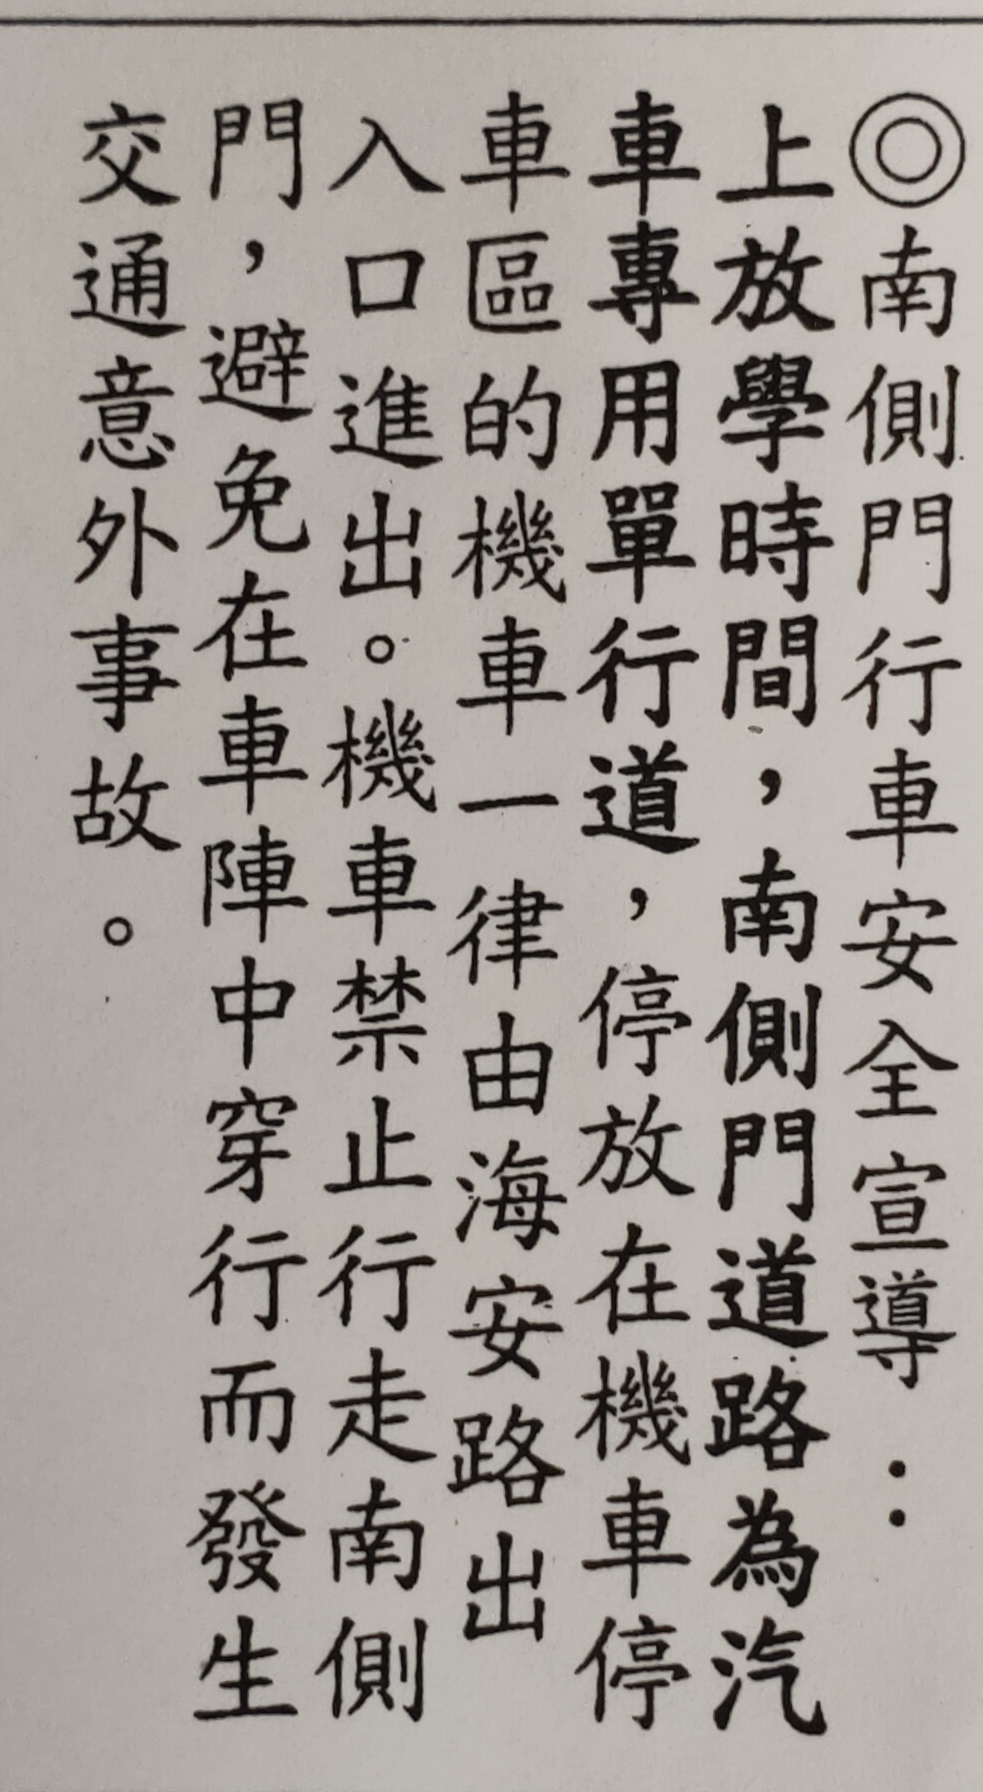 ◎南側門行車安全宣導：
上放學時間，南側門道路為汽
車專用單行道，停放在機車停
車區的機車一律由海安路出
入口進出。機車禁止行走南側
門，避免在車陣中穿行而發生
交通意外事故。